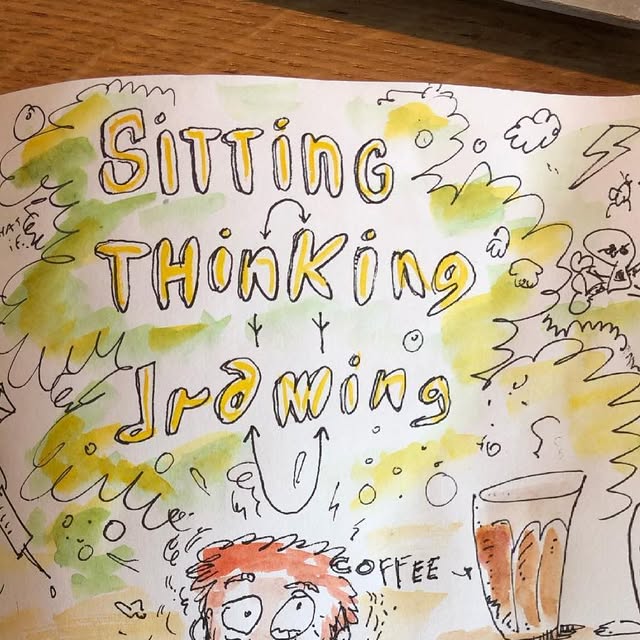 SiTTing
THinKing
drawing
COFFEE